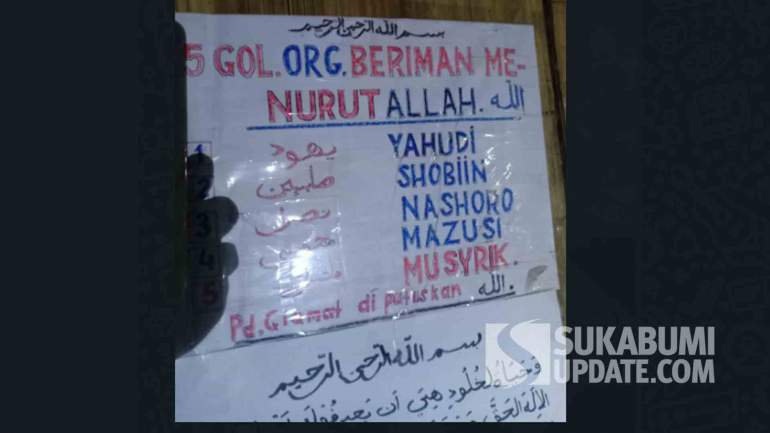 بسم الله الرحمن الرحيم
5 GOL.ORG.BERIMAN ME-
NURUT ALLAH. الله
1 يهود YAHUDI
2 صابيين SHOBIIN
3 نصرى NASHORO
4 MAZUSI
5 MUSYRIK.
Pd.Qiamat di putuskan الله.
بسم الله الرحمن الرحيم
هي أن
الإله الحق
SUKABUMI
UPDATE.COM